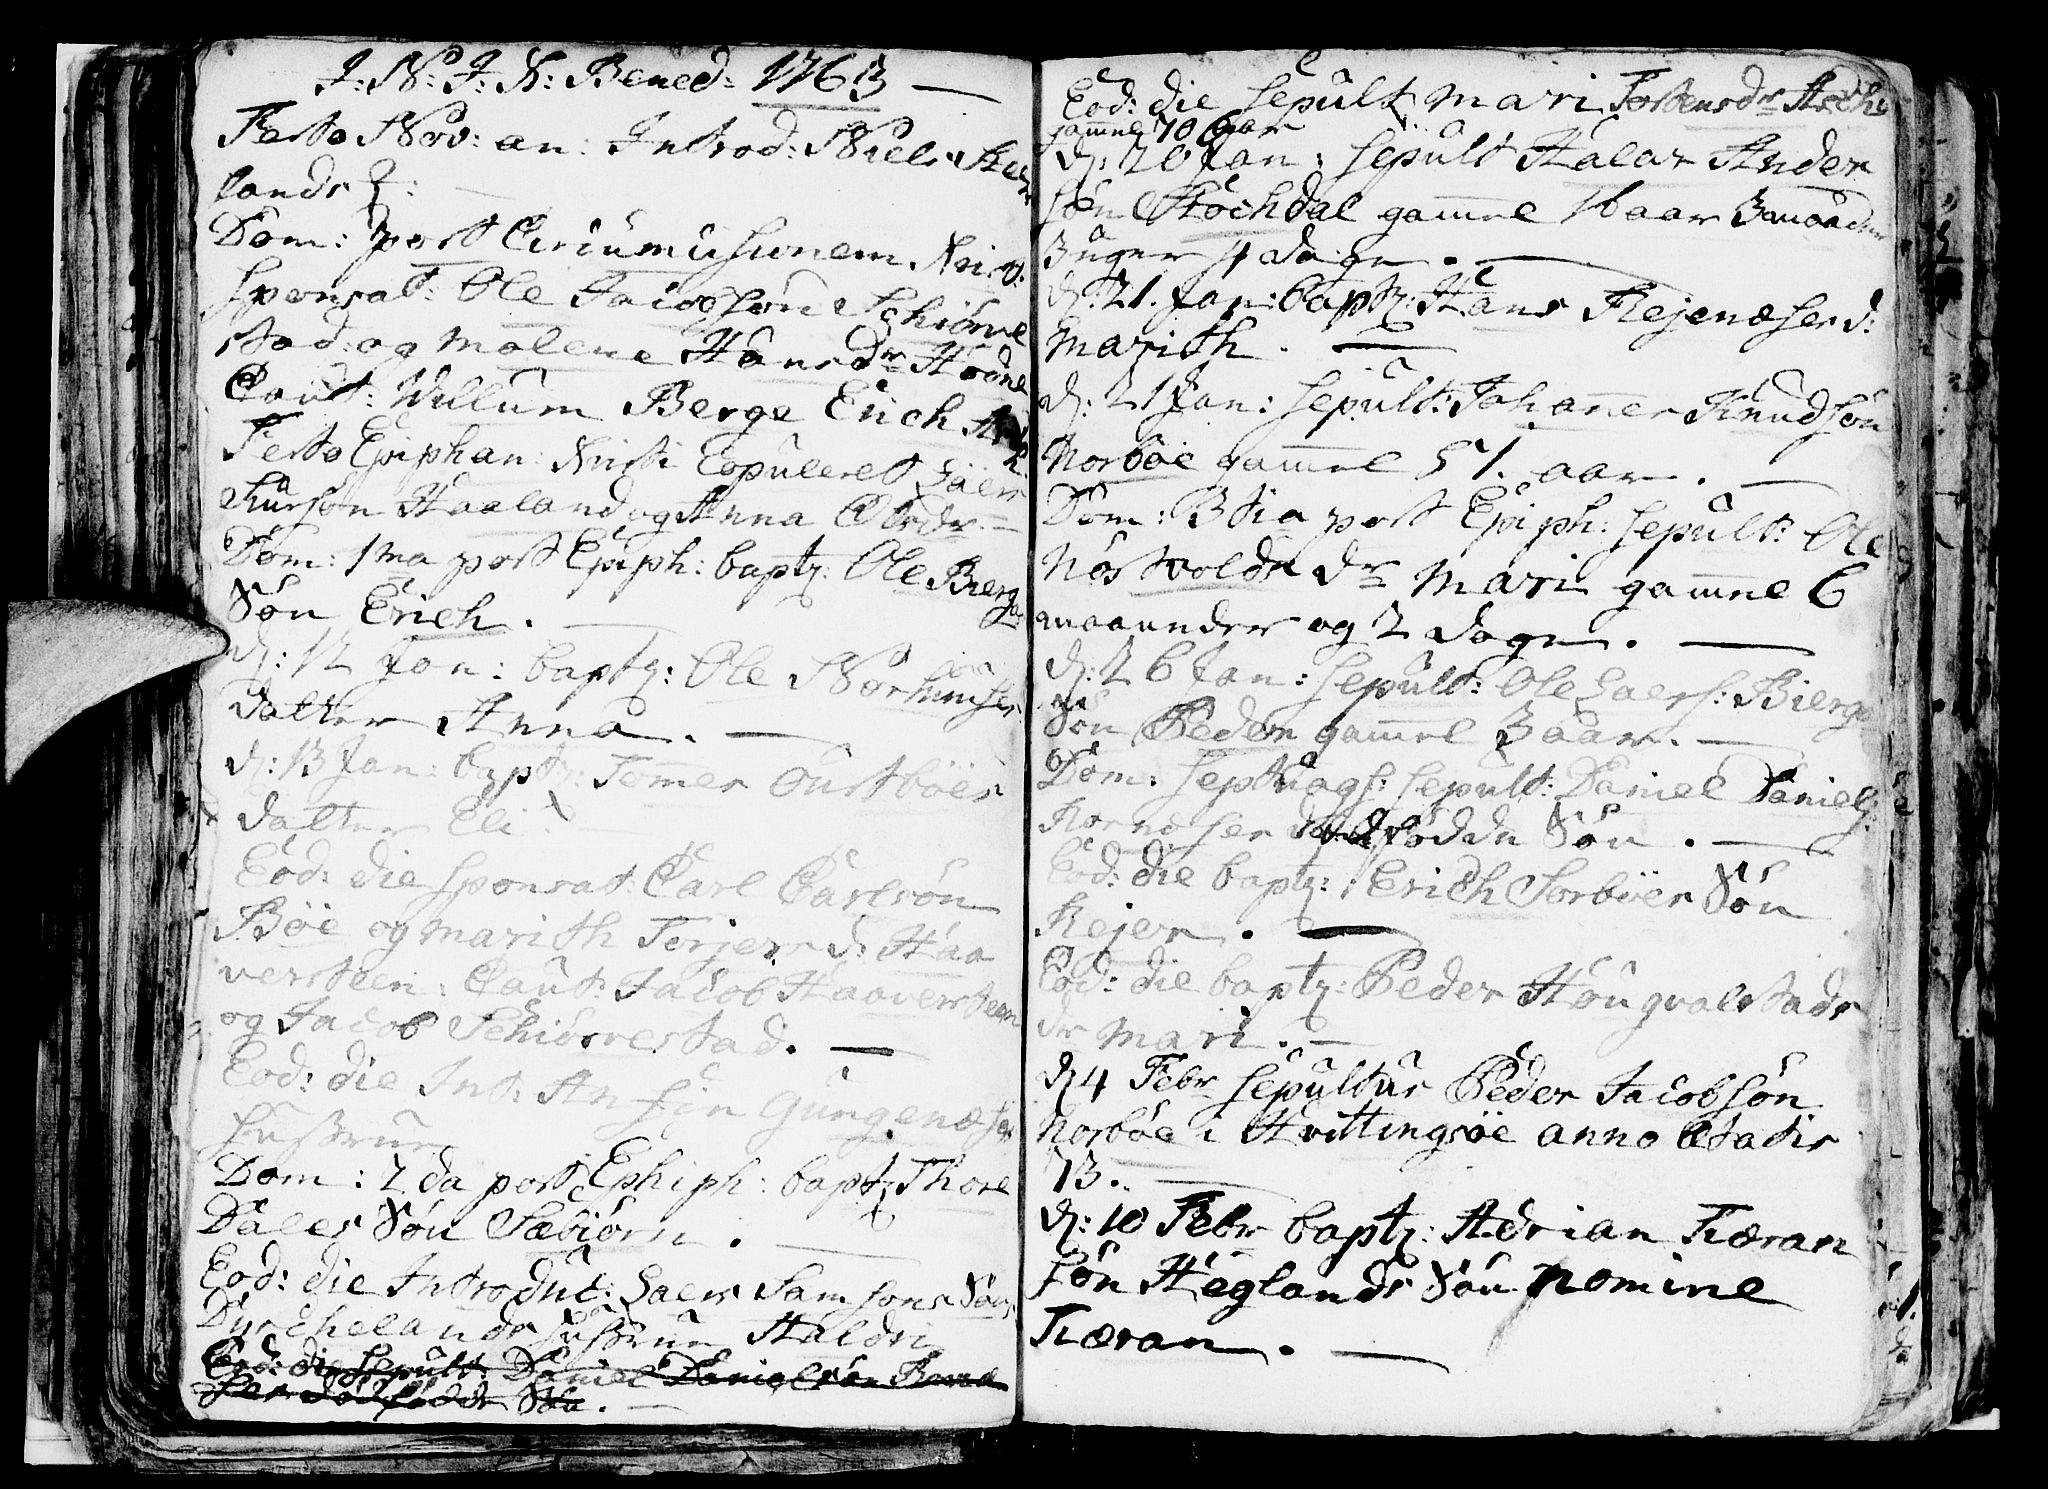 J: N: J: N: Bened: 1763 —
Festo Nov: an: Introd: Niels
lands q: —
Dom: post Circumcisionem Xristi
sponsat: Ole Jacobsøn Schiörve
stad og Malene Hansdr Hodne
Caut: Willum Berge Erich
Festo Epiphan: Xristi Copuleret Saer
Kursøn Haaland og Anna Olsdr —
Dom: 1ma post Epiph: baptz: Ole Bierga
Søn Erich. —
d: 12 Jan: baptz: Ole
datter Anna. —
d: 13 Jan: baptz: Tomes Oustböes
datter Eli. —
Eod: die sponsat: Carl Carlsøn
Böe og Marith Torjersd: Haa
versteen: Caut: Jacob Haaversteen
og Jacob Schiörvestad. —
Eod: die Int: Anfin Gungenæses
hustrue
Dom: 2da post Ephiph: baptz Thore
Dales Søn Sæbiörn. —
Eod: die Introduc: Saer Samsons Søns
Dyrchelands hustrue Haldri
Eod: die sepult: Daniel Danielsøn
dödfödde Søn. —
Eod: die sepult Mari Tostensdr
gamel 70 aar
d: 20 Jan: sepult Halar Ander
søn Stöchdal gamel 16 aar 3 maaneder
3 uger 4 dage. —
d: 21. Jan: baptz: Hans Rejenæses d:
Marith. —
d: 21 Jan: sepult: Johanes Knudsøn
Norböe gamel 51. aar. —
Dom: 3tia post Epiph: sepult: Ole
Nöstvolds dr Mari gamel 6
maaneder og 2 dage. —
d: 26 Jan: sepult: Ole Saers: Bierge
Søn Peder gamel 3 aar. —
Dom: Septuags: sepult: Daniel Daniels:
dödfödde Søn. —
Eod: die baptz: Erich Sorböes Søn
Rejer. —
Eod: die baptz: Peder Houngvalstads
dr Mari. —
d 4 Febr sepultus Peder Jacobsøn
Norböe i Hvittingsöe anno ætatis
73. —
d: 10 Febr baptz: Adrian Tæran
søn Heglands Søn nomine
Tæran. —